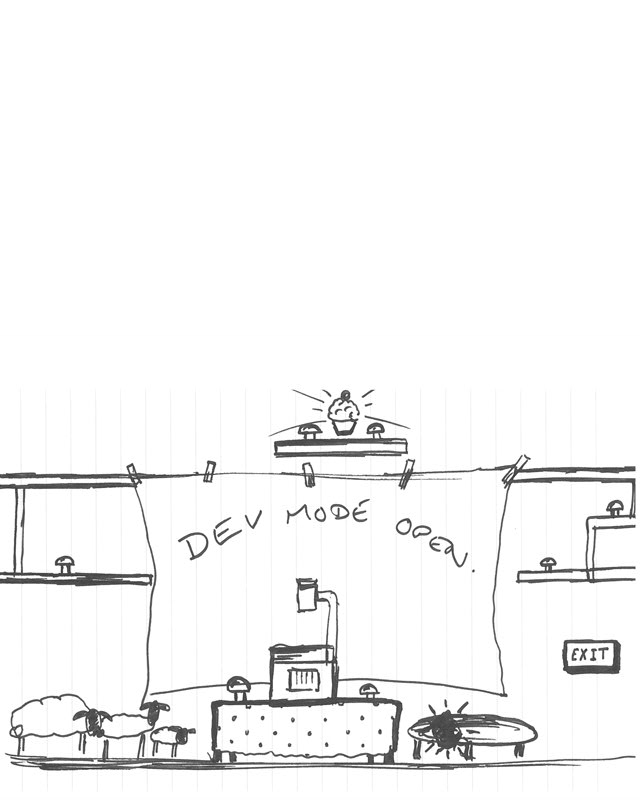 DEV MODE OPEN.
EXIT